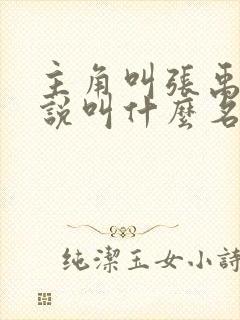 主角叫張禹
說叫什麼名
純潔玉女小詩